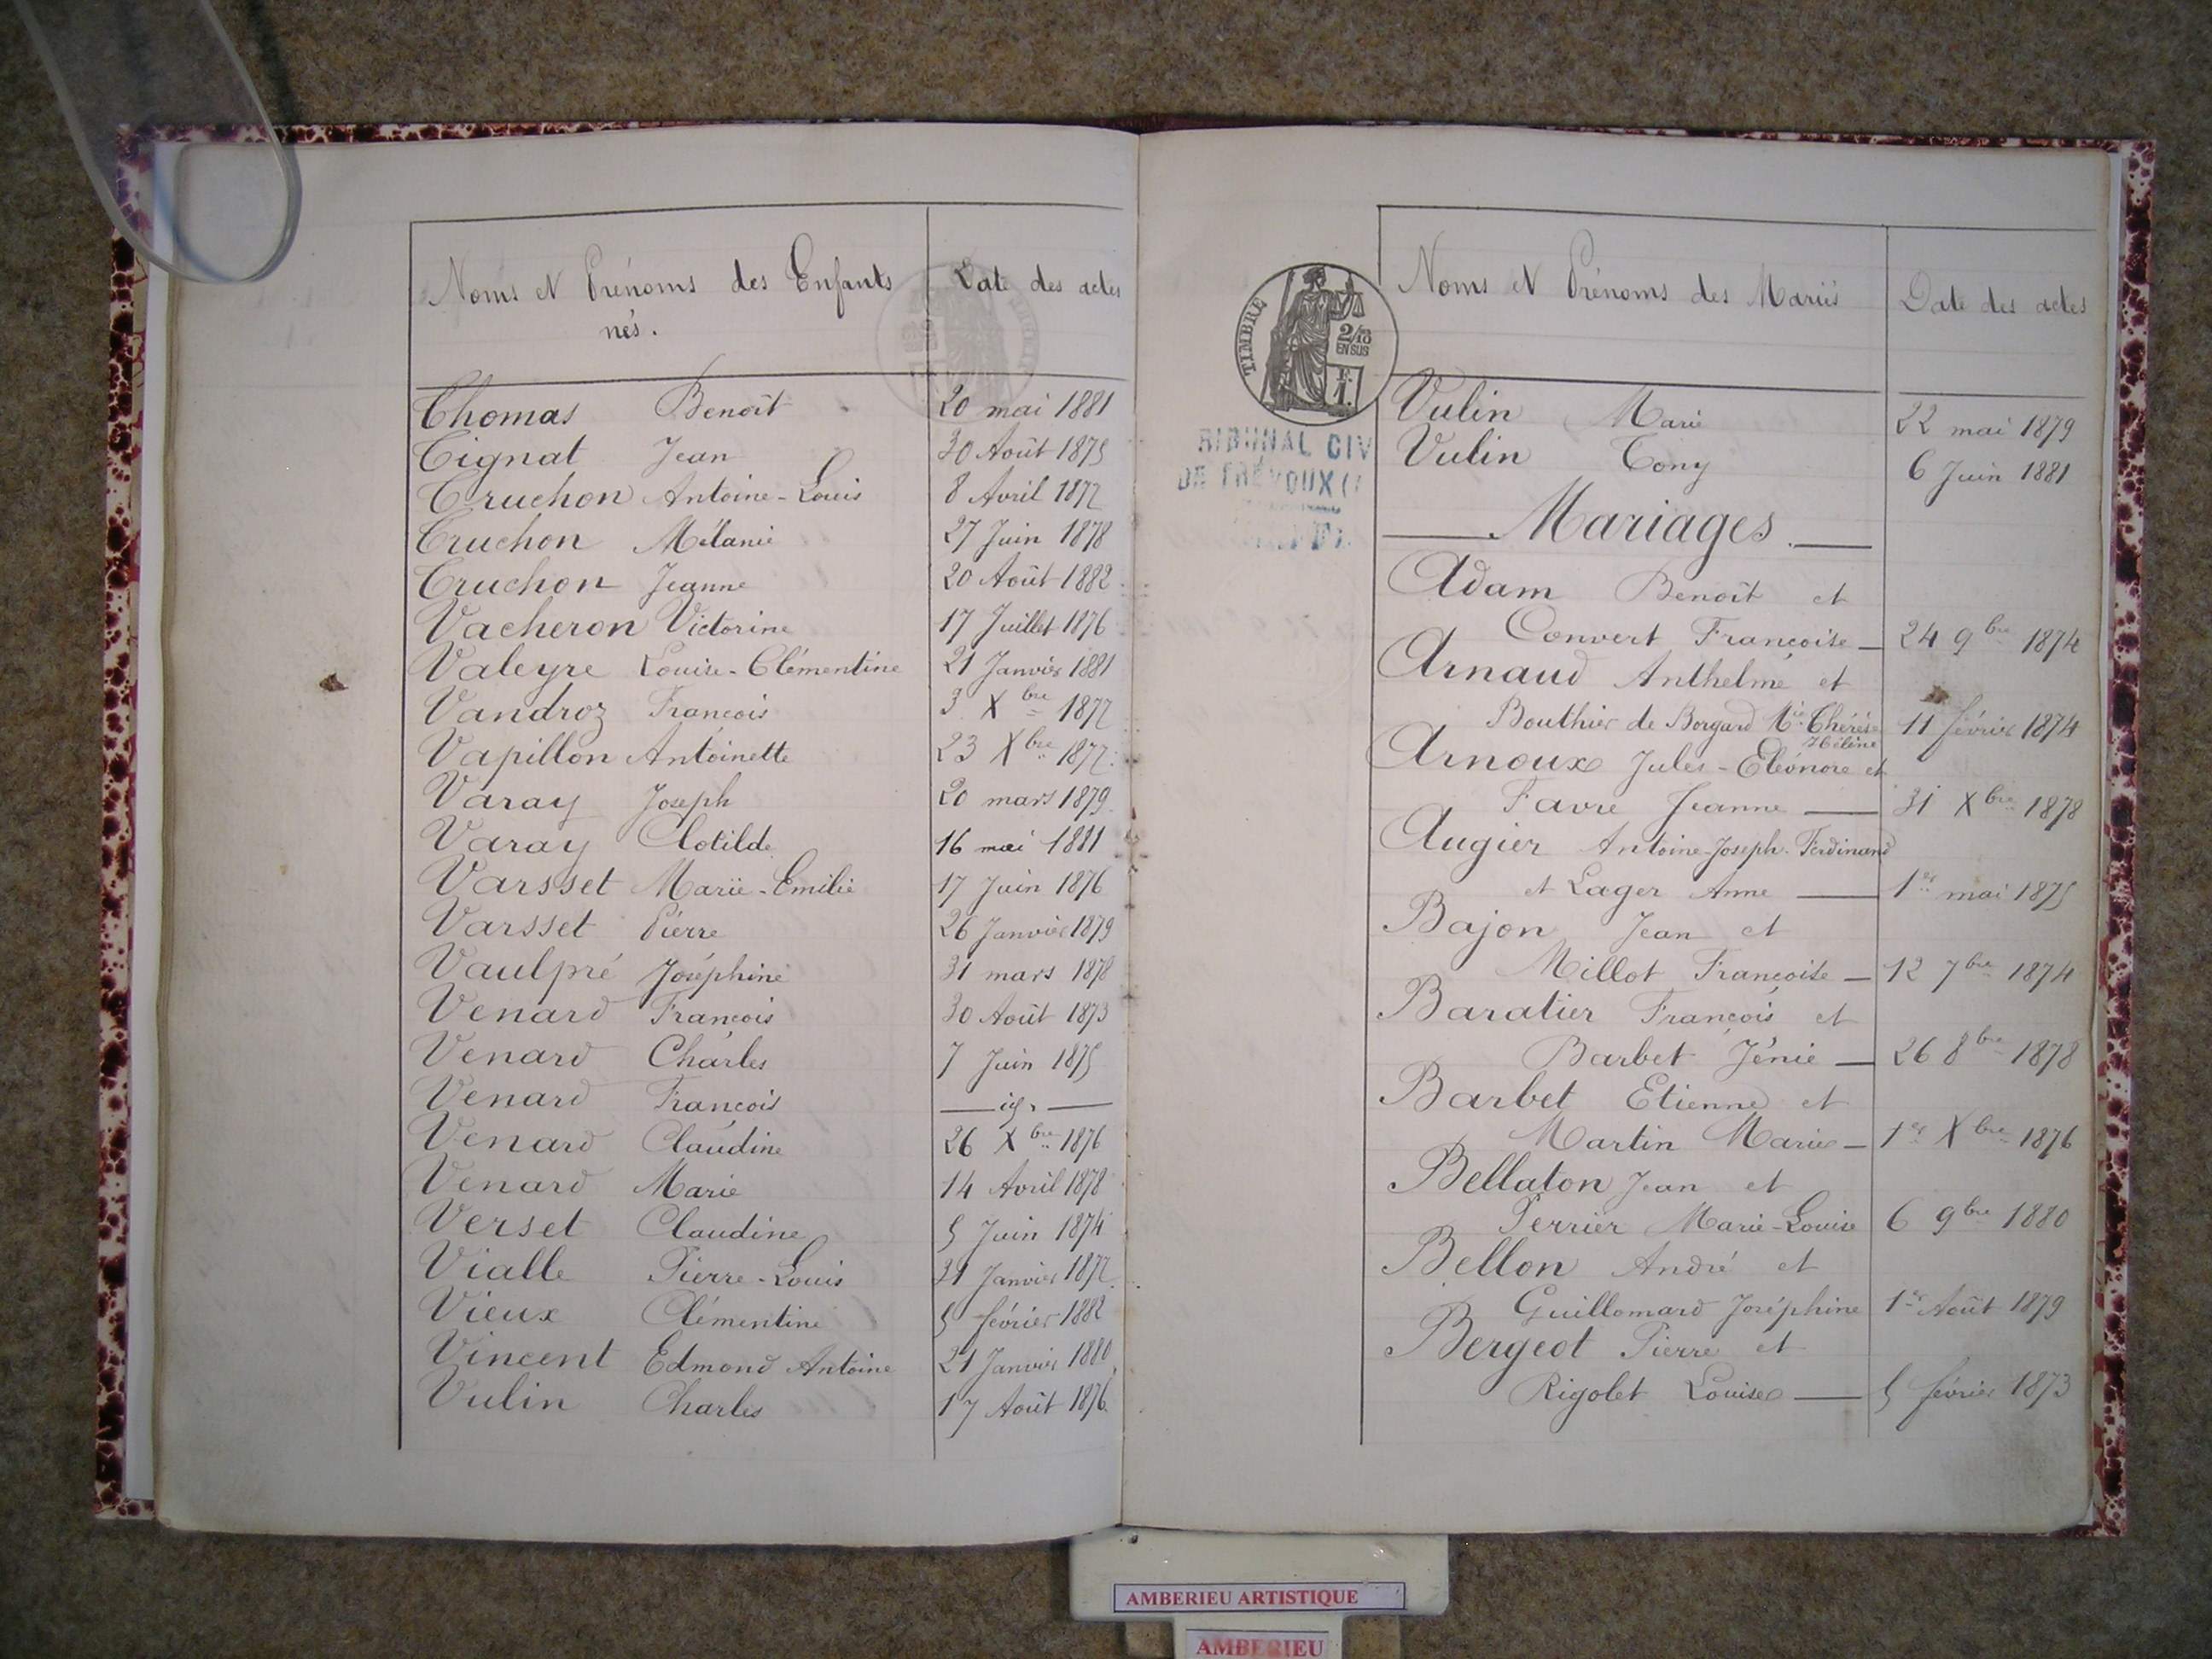 Noms et Prénoms des Enfants
nés.
Date des actes
Thomas Benoît 20 mai 1881
Tignat Jean 30 Août 1875
Truchon Antoine-Louis 8 Avril 1877
Truchon Mélanie 27 Juin 1878
Truchon Jeanne 20 Août 1882
Vacheron Victorine 17 Juillet 1876
Valeyre Louise-Clémentine 21 Janvier 1881
Vandroz François 3 Xbre 1877
Vapillon Antoinette 23 Xbre 1877
Varay Joseph 20 mars 1879
Varay Clotilde 16 mai 1881
Varsset Marie-Emilie 17 Juin 1876
Varsset Pierre 26 Janvier 1879
Vaulpré Joséphine 31 mars 1878
Venard François 30 Août 1873
Venard Charles 7 Juin 1875
Venard François — id. —
Venard Claudine 26 Xbre 1876
Venard Marie 14 Avril 1878
Verset Claudine 5 Juin 1874
Vialle Pierre-Louis 31 Janvier 1877
Vieux Clémentine 5 février 1882
Vincent Edmond Antoine 21 Janvier 1880
Vulin Charles 17 Août 1876
TIMBRE
2/10
EN SUS
F.
1.
RIBUNAL CIV
DE TRÉVOUX (
Noms et Prénoms des Mariés
Date des actes
Vulin Marie 22 mai 1879
Vulin Tony 6 Juin 1881
— Mariages. —
Adam Benoît et
Convert Françoise — 24 9bre 1874
Arnaud Anthelme et
Bouthier de Borgard Mie Thérèse 11 février 1874
Hélène
Arnoux Jules-Eléonore et
Favre Jeanne — 31 Xbre 1878
Augier Antoine-Joseph-Ferdinand
et Lager Anne — 1er mai 1875
Bajon Jean et
Millot Françoise — 12 7bre 1874
Baratier François et
Barbet Jénie — 26 8bre 1878
Barbet Etienne et
Martin Marie — 1er Xbre 1876
Bellaton Jean et
Perrier Marie-Louise 6 9bre 1880
Bellon André et
Guillomard Joséphine 1er Août 1879
Bergeot Pierre et
Rigolet Louise — 5 février 1873
AMBERIEU ARTISTIQUE
AMBERIEU